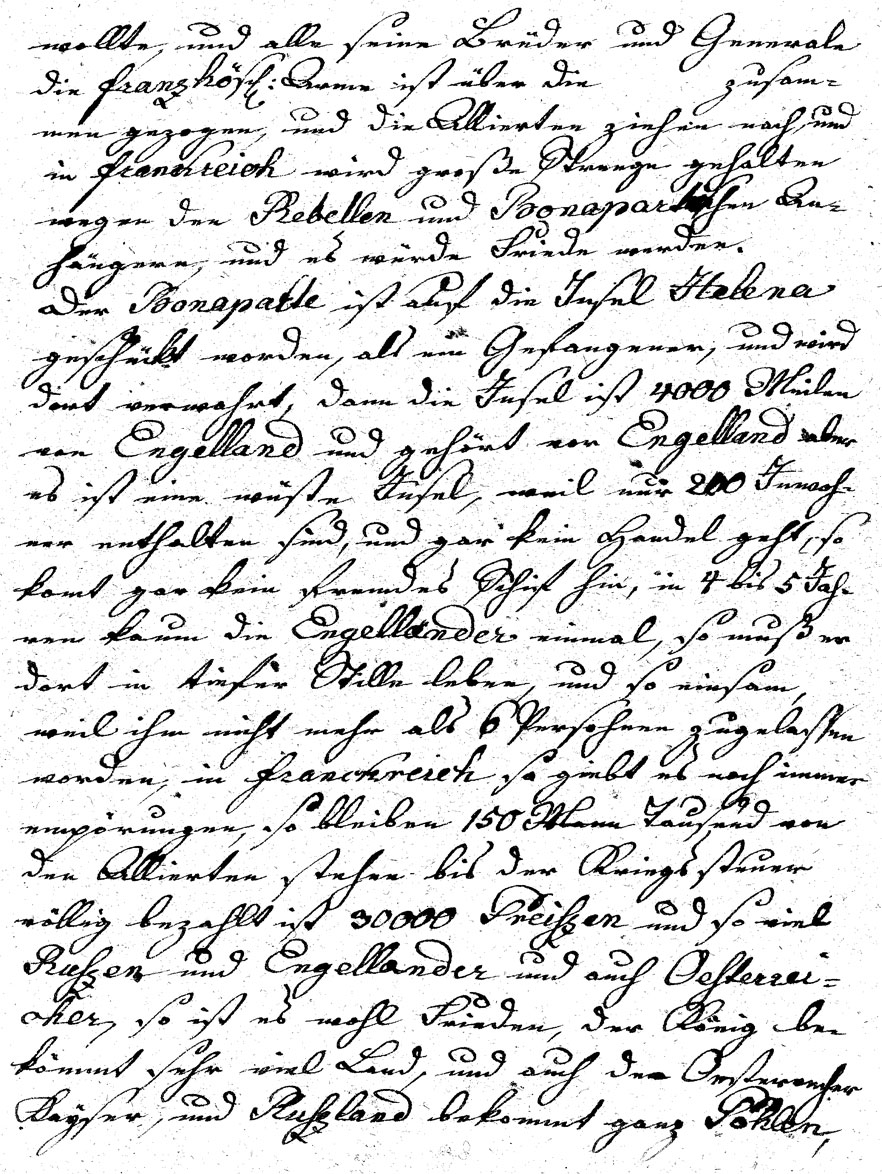 wollte, und alle seine Brüder und Generale
die franzhösch: Arme ist über die zusam=
men gezogen, und die Allierten ziehen nach, und
in franckreich wird große Strenge gehalten
wegen den Rebellen und Bonapartischen An=
hängern, und es würde Friede werden.
Der Bonaparte ist auf die Insel Helena
geschückt worden, als ein Gefangener, und wird
dort verwahrt, dann die Insel ist 4000 Meilen
von Engelland und gehört vor Engelland aber
es ist eine wüste Insel, weil nur 200 Inwoh=
ner enthalten sind, und gar kein Handel geht, so
komt gar kein fremdes Schif hin, in 4 bis 5 Jah=
ren kaum die Engelländer einmal, so muß er
dort in tiefer Stille leben, und so einsam,
weil ihm nicht mehr als 6 Persohnen zugelassen
worden, in franckreich so giebt es noch immer
empörungen, so bleiben 150 Mann Tausend von
den Allierten stehen bis der Kriegs steuer
völlig bezahlt ist 30000 Preißzen und so viel
Rußzen und Engellander und auch Oesterrei=
cher, so ist es wohl Frieden, der König be=
kömmt sehr viel Land, und auch der Oesterreicher
Kayser, und Rußzland bekommt ganz Pohlen,